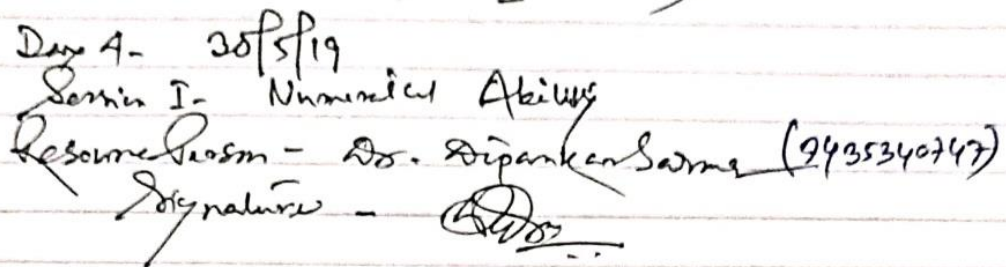 Day 4- 30/5/19
Session I- Numerical Ability
Resource Person - Dr. Dipankar Sarma (9435340747)
Signature -